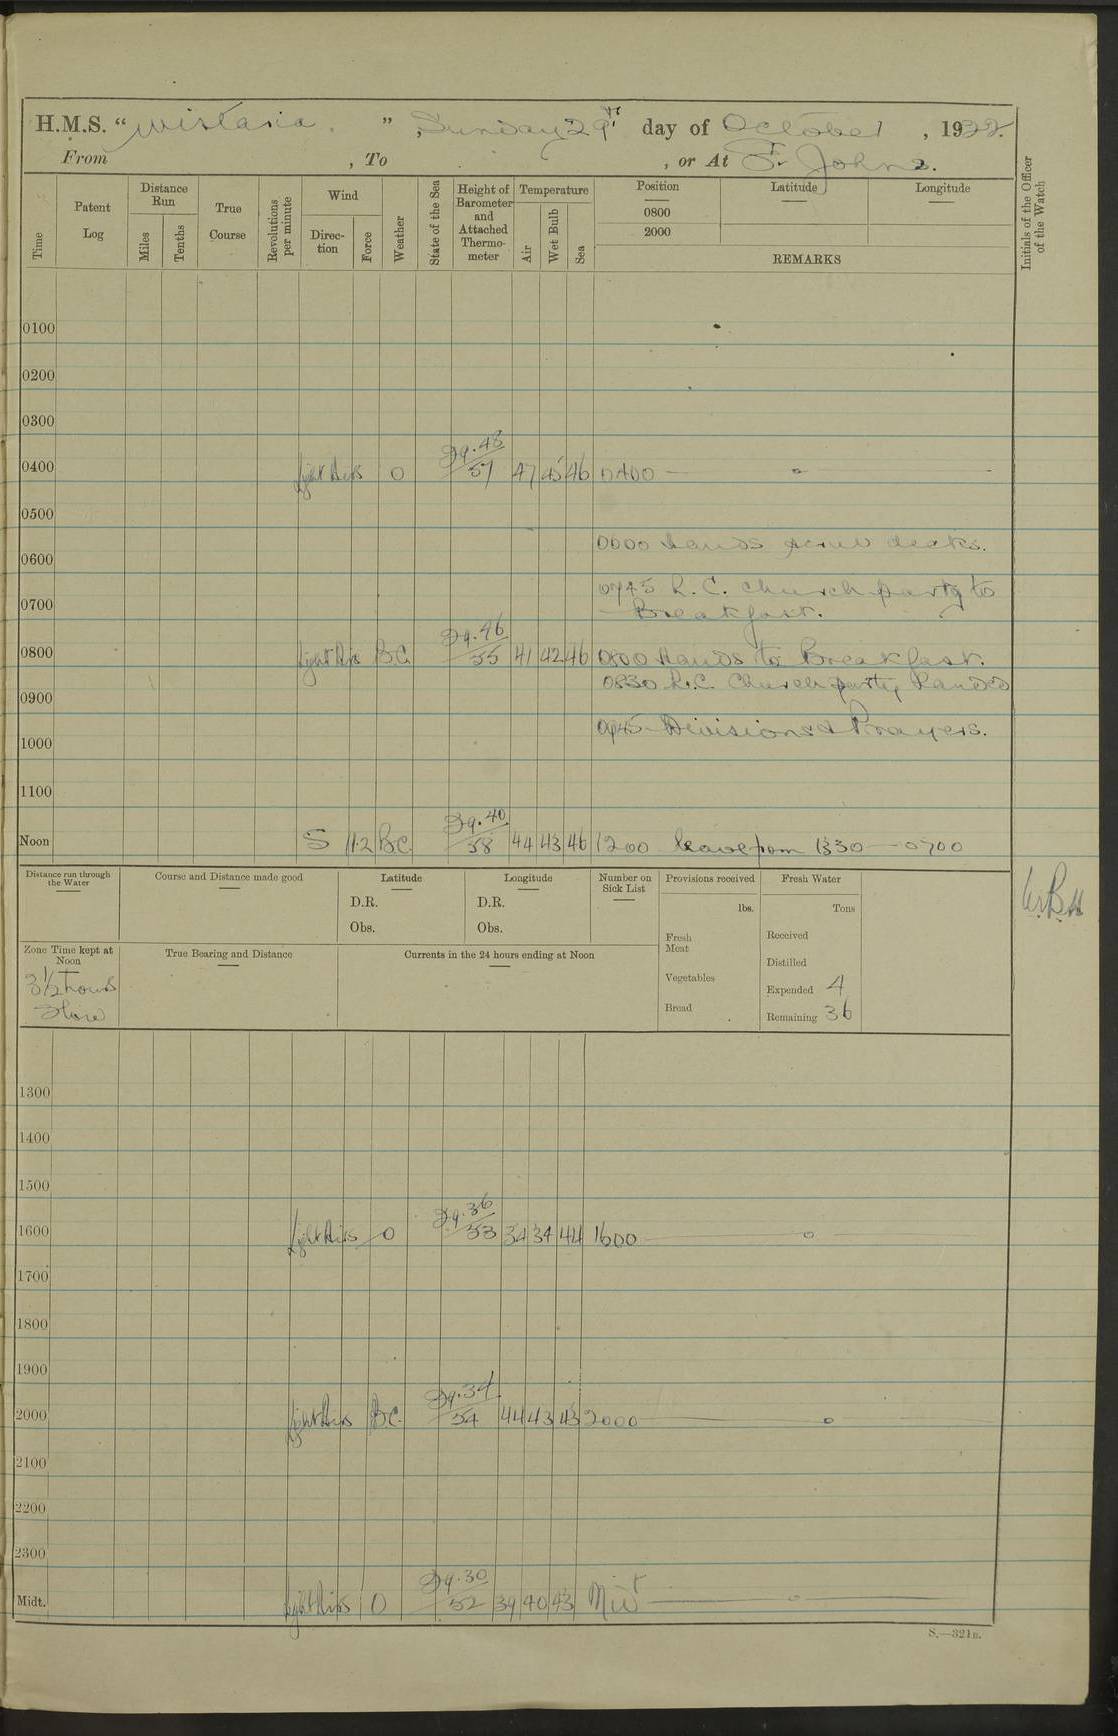 H.M.S. " Wistaria. " , Sunday 29th day of October , 1922.
From , To , or At St. Johns.
Time
Patent Log
Distance Run
Miles
Tenths
True Course
Revolutions per minute
Wind
Direction
Force
Weather
State of the Sea
Height of Barometer and Attached Thermometer
Temperature
Air
Wet Bulb
Sea
Position
0800
2000
Latitude
Longitude
REMARKS
Initials of the Officer of the Watch
0100
0200
0300
0400 Light Airs O 29.48/57 47 45 46 0400 — " —
0500
0600 hands scrub decks.
0600
0745 R.C. Church party to
0700
Breakfast.
0800 Light Airs BC 29.46/55 41 42 46 0800 Hands to Breakfast.
0830 R.C. Church party landed
0900
0945 Divisions & Prayers.
1000
1100
Noon S 1.2 BC 29.40/58 44 43 46 1200 Leave from 1330 — 0700
Distance run through the Water
Course and Distance made good
Latitude
D.R.
Obs.
Longitude
D.R.
Obs.
Number on Sick List
Provisions received
lbs.
Fresh Meat
Vegetables
Bread
Fresh Water
Tons
Received
Distilled
Expended 4
Remaining 36
Zone Time kept at Noon
3½ hours
Slow
True Bearing and Distance
Currents in the 24 hours ending at Noon
1300
1400
1500
1600 Light Airs O 29.36/53 34 34 44 1600 — o —
1700
1800
1900
2000 Light Airs BC 29.34/54 44 43 43 2000 — o
2100
2200
2300
Midt. Light Airs O 29.30/52 39 40 43 Midt — o —
S.—321B.